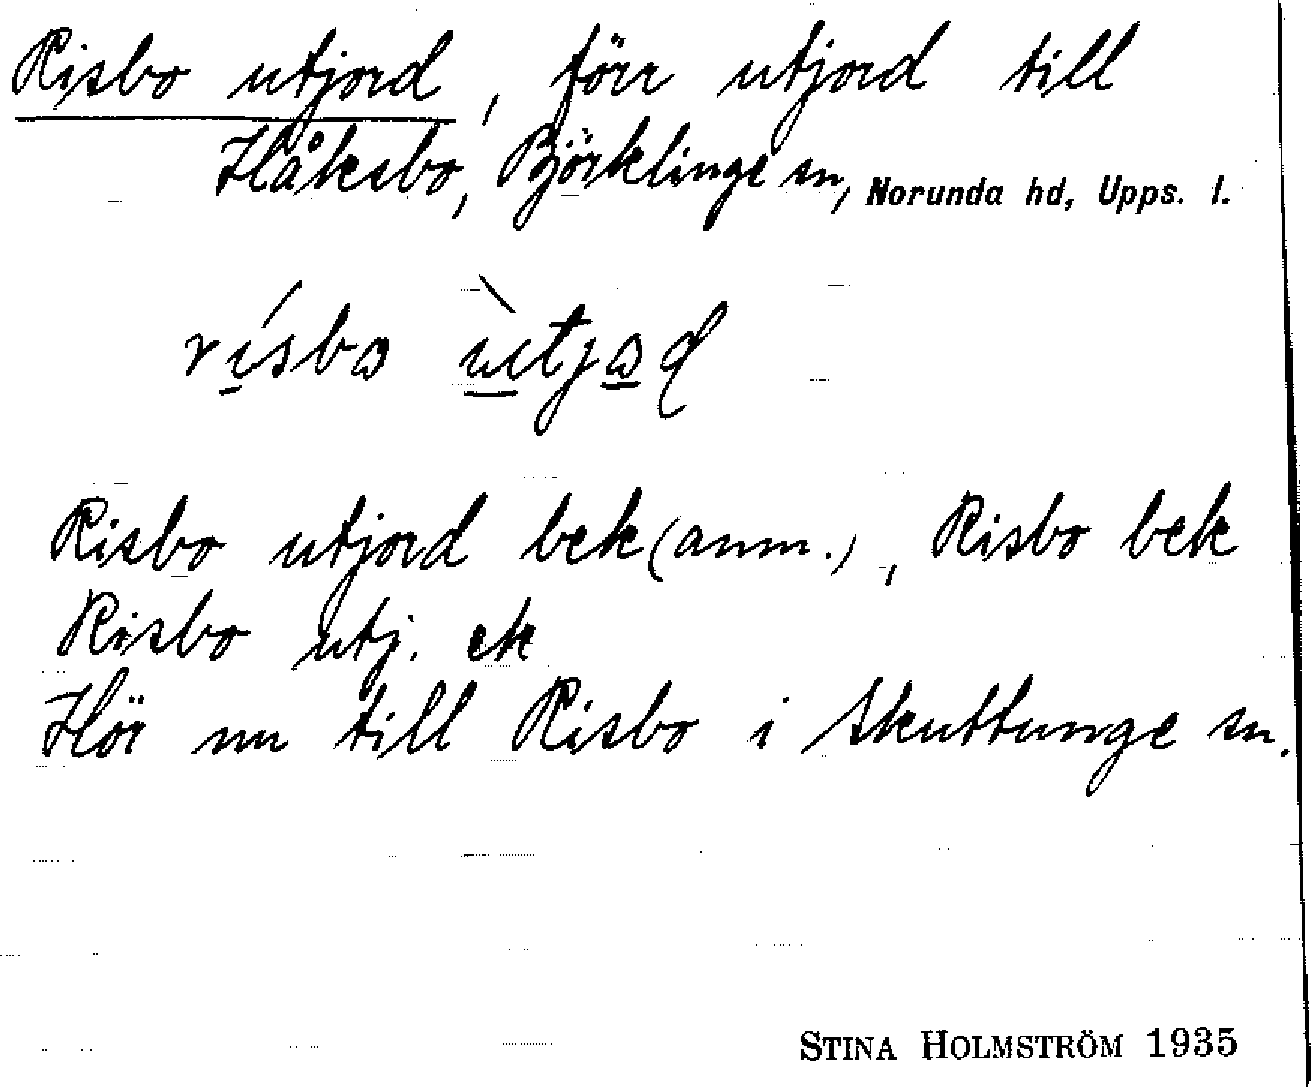 Risbo utjord, förr utjord till
Håksbo, Björklinge sn, Norunda hd, Upps. l.
rísbɷ ùtjɷḍ
Risbo utjord bek (anm.), Risbo bek
Risbo utj. ek
Hör nu till Risbo i Skuttunge sn.
STINA HOLMSTRÖM 1935